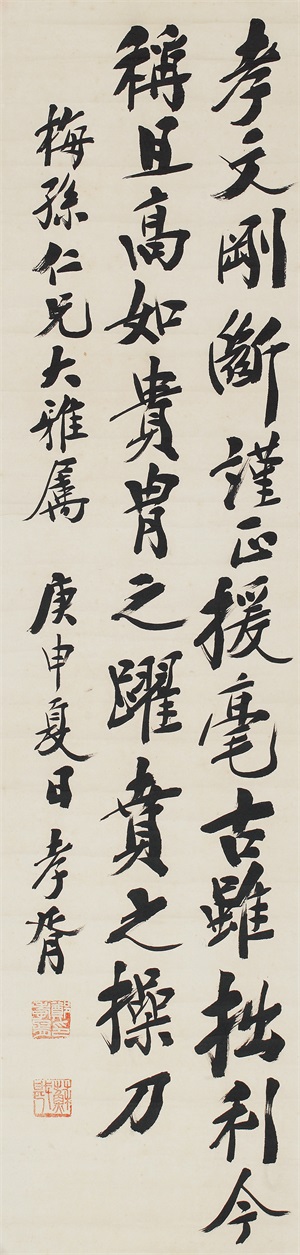 孝文剛斷謹正援毫古雖拙利今
稱且高如貴胄之躍賁之操刀
梅孫仁兄大雅屬 庚申夏日 孝胥